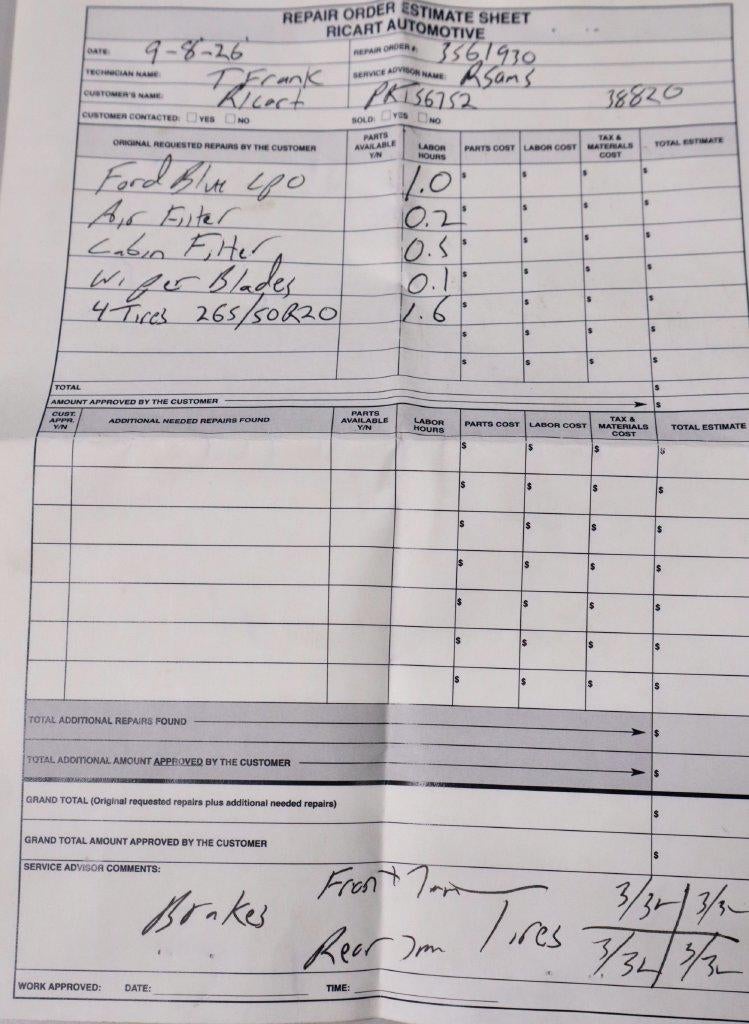 REPAIR ORDER ESTIMATE SHEET
RICART AUTOMOTIVE
DATE: 9-8-26 REPAIR ORDER #: 3561930
TECHNICIAN NAME: T Frank SERVICE ADVISOR NAME: RSams
CUSTOMER'S NAME: Ricart PRT56752 38820
CUSTOMER CONTACTED: YES NO SOLD: YES NO
ORIGINAL REQUESTED REPAIRS BY THE CUSTOMER PARTS AVAILABLE Y/N LABOR HOURS PARTS COST LABOR COST TAX & MATERIALS COST TOTAL ESTIMATE
Ford Blue 1.0 $ $ $ $
Air Filter 0.2 $ $ $ $
Cabin Filter 0.5 $ $ $ $
Wiper Blades 0.1 $ $ $ $
4 Tires 265/50R20 1.6 $ $ $ $
$ $ $ $
$ $ $ $
TOTAL $
AMOUNT APPROVED BY THE CUSTOMER $
CUST. APPR. Y/N ADDITIONAL NEEDED REPAIRS FOUND PARTS AVAILABLE Y/N LABOR HOURS PARTS COST LABOR COST TAX & MATERIALS COST TOTAL ESTIMATE
$ $ $ $
$ $ $ $
$ $ $ $
$ $ $ $
$ $ $ $
$ $ $ $
$ $ $ $
TOTAL ADDITIONAL REPAIRS FOUND $
TOTAL ADDITIONAL AMOUNT APPROVED BY THE CUSTOMER $
GRAND TOTAL (Original requested repairs plus additional needed repairs) $
GRAND TOTAL AMOUNT APPROVED BY THE CUSTOMER $
SERVICE ADVISOR COMMENTS:
Front 7mm 3/32 3/32
Brakes Tires
Rear 7mm 3/32 3/32
WORK APPROVED: DATE: TIME: